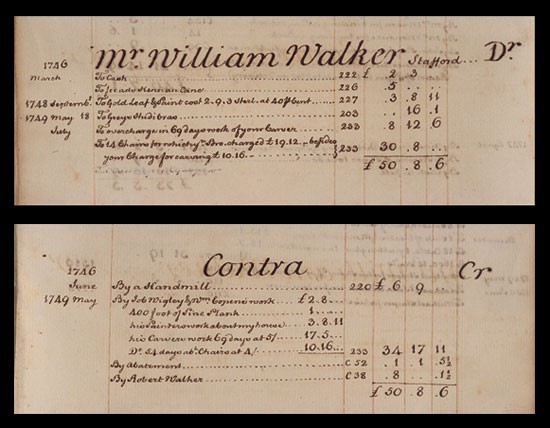 1746 Mr. William Walker Stafford Dr
March To Cash 222 £ 2 3
To Cane 226 5
1748 Septembr. To Gold Leaf & Paint cost 2.9.3 Sterl. at 40 P Cent 227 3 8 11
1749 May 18 To Greys Hudibras 203 16 1
July To overcharge in 69 days work of your Carver 233 8 12 6
To 14 Chairs for which yr. Bro. charged £19.12 besides
your Charge for carving £10.16 233 30 8
£50 8 6
Contra Cr
1746
June By a Handmill 220 £ 6 9
1749 May By Job Wigley & Wm. work £2.8
400 foot of Pine Plank 1
his Painters work about my house 3.8.11
his Carvers work 69 days at 5/ 17.5
Do. 54 days abt. Chairs at 4/ 10.16 233 34 17 11
By Abatement C 52 1 1 5½
By Robert Walker C 38 8 1½
£50 8 6